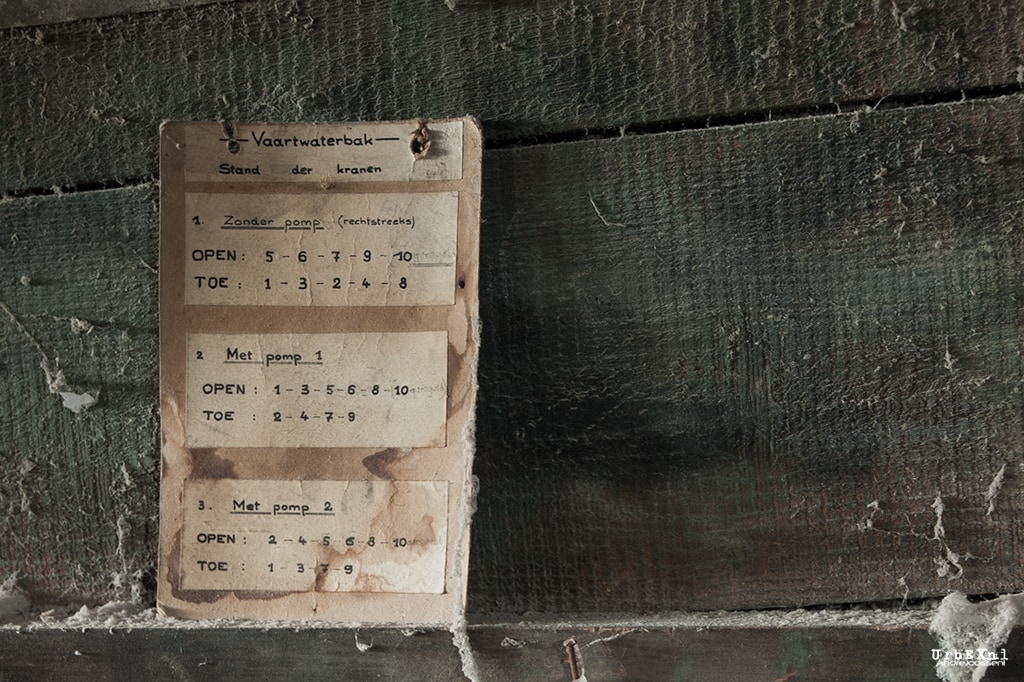 Vaartwaterbak
Stand der kranen
1. Zonder pomp (rechtstreeks)
OPEN: 5 - 6 - 7 - 9 - 10
TOE: 1 - 3 - 2 - 4 - 8
2 Met pomp 1
OPEN: 1 - 3 - 5 - 6 - 8 - 10
TOE: 2 - 4 - 7 - 9
3. Met pomp 2
OPEN: 2 - 4 - 5 - 6 - 8 - 10
TOE: 1 - 3 - 7 - 9
UrbEXnl
AndreJoosse.nl